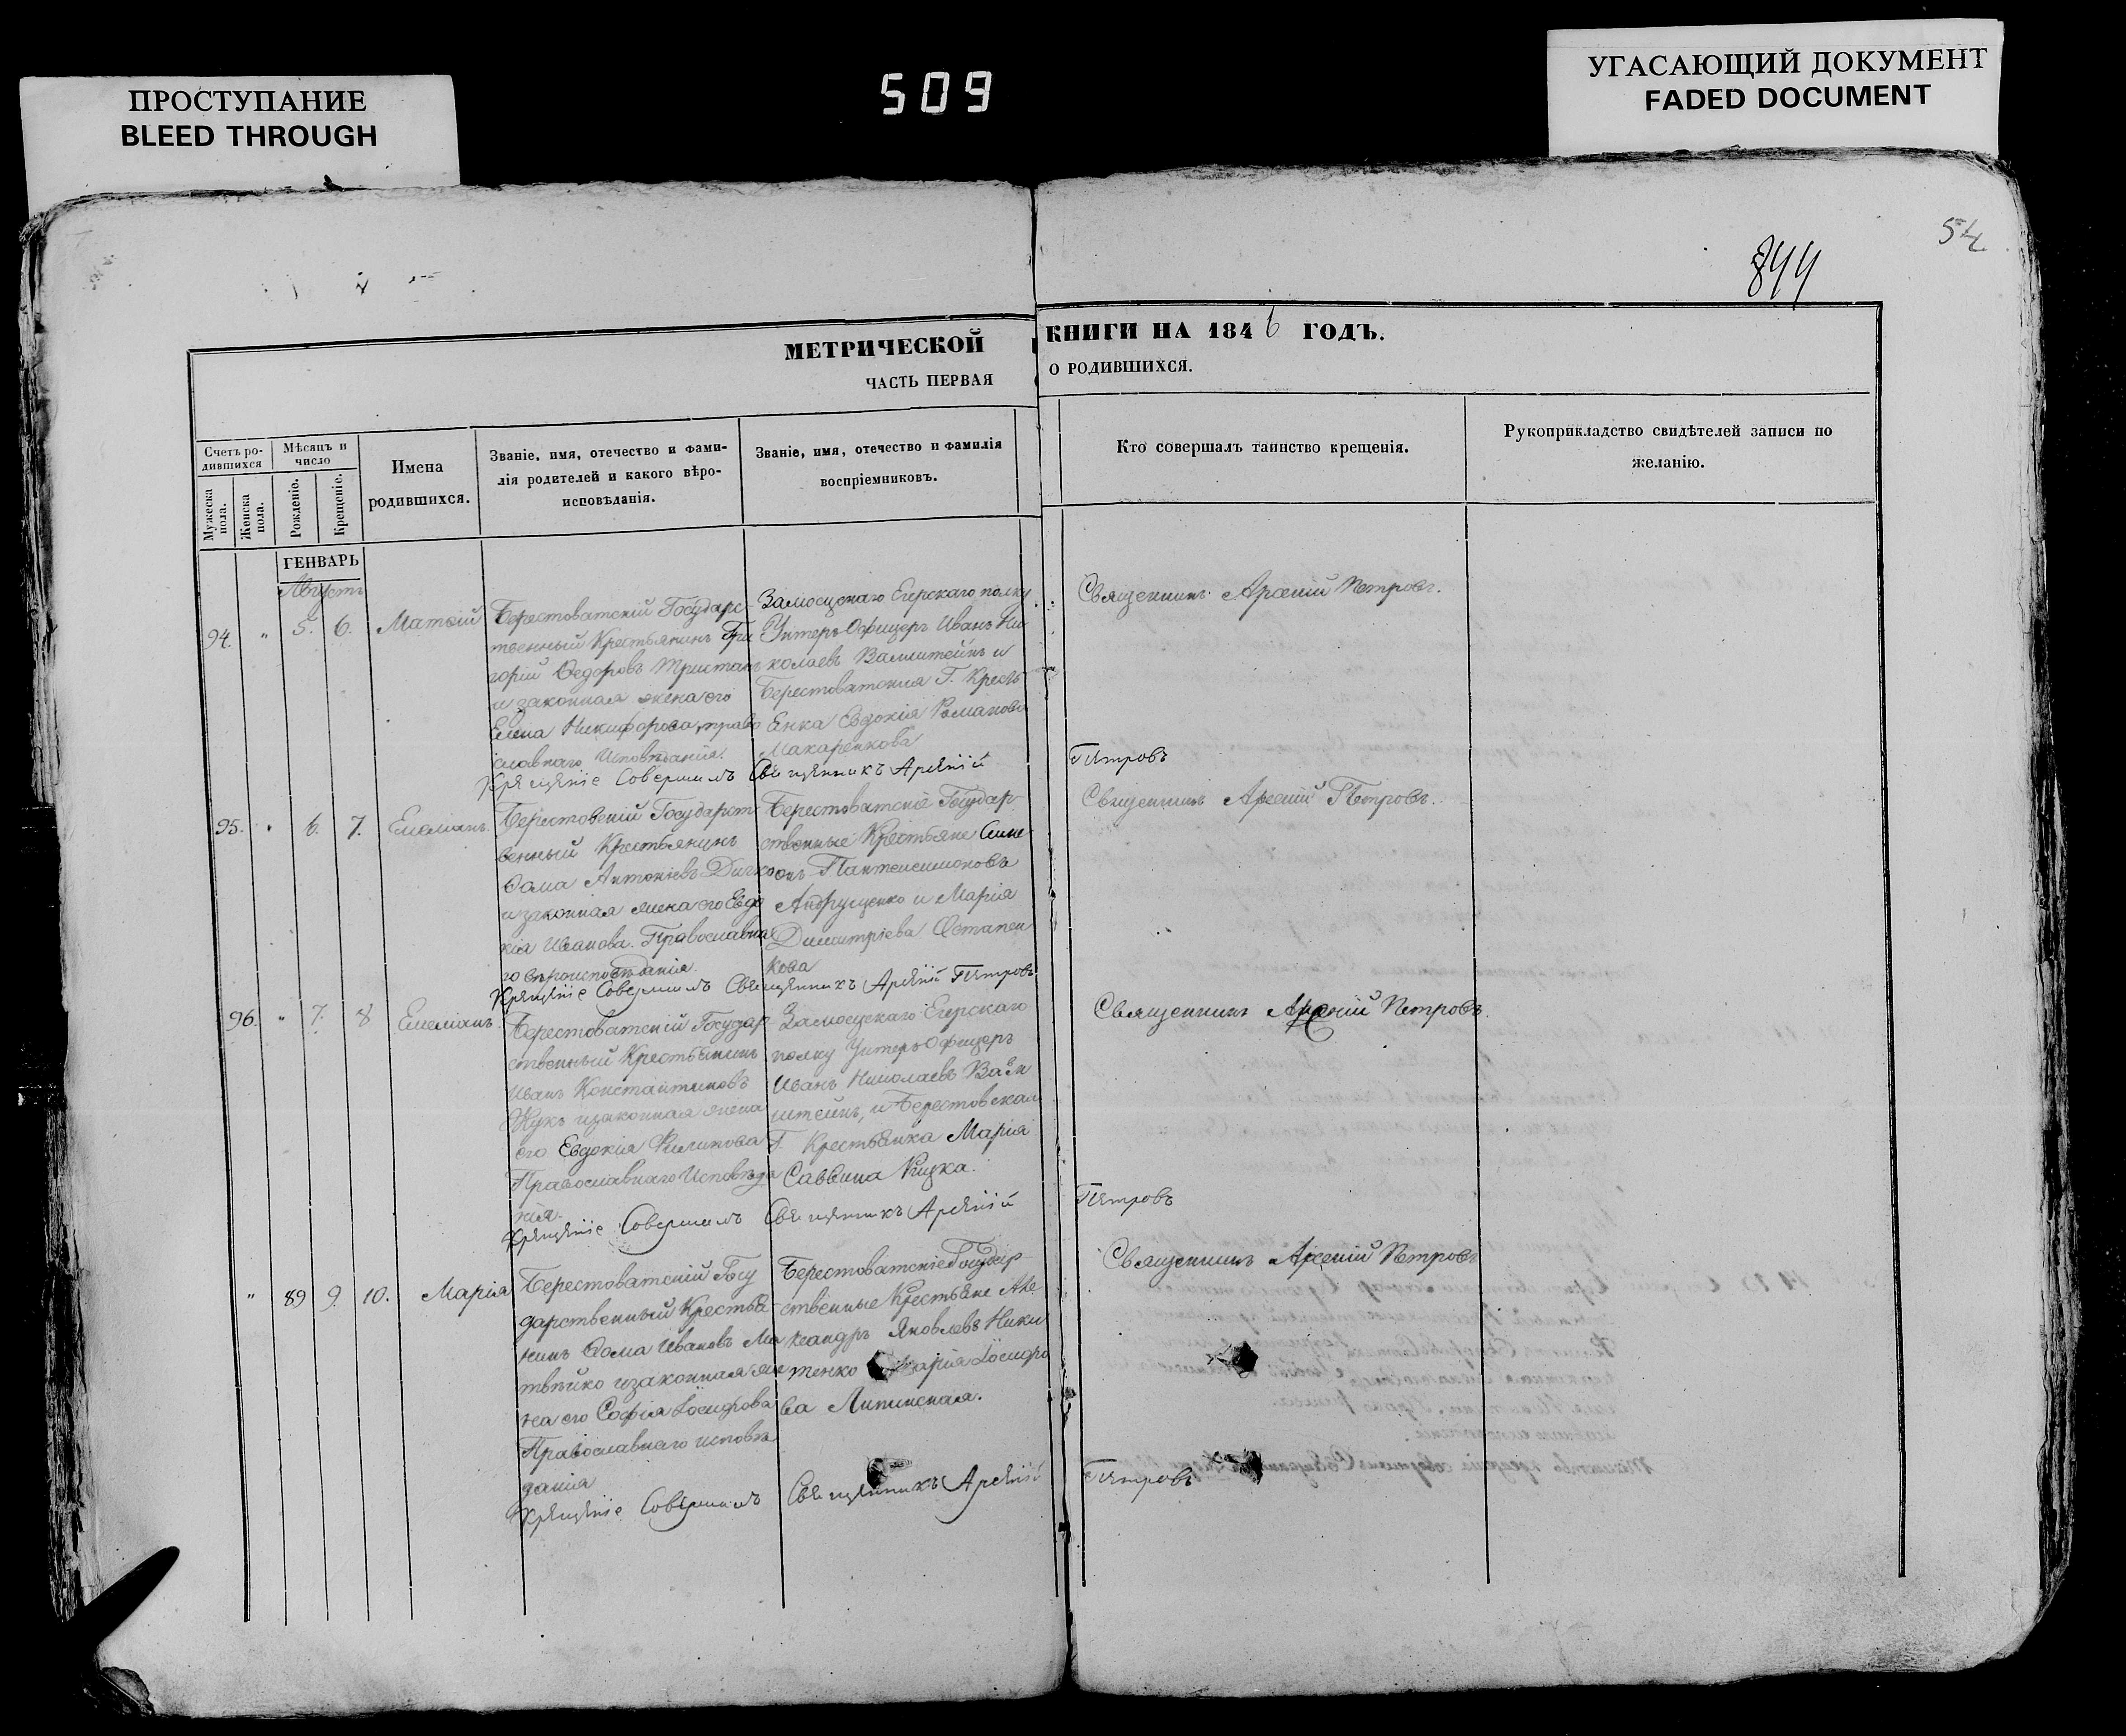 ПРОСТУПАНИЕ
BLEED THROUGH
509
УГАСАЮЩИЙ ДОКУМЕНТ
FADED DOCUMENT
54
844
МЕТРИЧЕСКОЙ КНИГИ НА 1846 ГОДЪ.
ЧАСТЬ ПЕРВАЯ О РОДИВШИХСЯ.
Счетъ ро-
дившихся
Мужеска пола.
Женска пола.
Мѣсяцъ и
число
Рожденіе.
Крещеніе.
Имена
родившихся.
Званіе, имя, отечество и фами-
лія родителей и какого вѣро-
исповѣданія.
Званіе, имя, отечество и фамилія
воспріемниковъ.
Кто совершалъ таинство крещенія.
Рукоприкладство свидѣтелей записи по
желанію.
ГЕНВАРЬ
Августъ
94. " 5. 6. Матѳій
Берестоватскій Государс-
твенный Крестьянинъ Гри
горій Ѳедоровъ Тристан
и законная жена его
Елена Никифорова, право
славнаго Исповѣданія.
Замосцскаго Егерскаго полку
Унтеръ Офицеръ Иванъ Ни
колаевъ Ваинштейнъ и
Берестоватская Г. Кресть
Енка Евдокія Романова
Макаренкова
Священникъ Арсеній Петровъ.
Крещеніе Совершилъ Священникъ Арсеній Петровъ
95. " 6. 7. Емеліанъ.
Берестовскій Государст
венный Крестьянинъ
Ѳома Антоніевъ Дичко
и законная жена его Евдо
кія Иванова. Православна
го вѣроисповѣданія.
Берестоватскіе Государ-
ственные Крестьяне Симе
онъ Пантелеимоновъ
Андрущенко и Марія
Димитріева Остапен
кова
Священникъ Арсеній Петровъ.
Крещеніе Совершилъ Священникъ Арсеній Петровъ
96. " 7. 8 Емеліанъ.
Берестоватскій Государ-
ственный Крестьянинъ
Иванъ Константиновъ
Жукъ изаконная жена
его Евдокія Филипова
Православнаго Исповѣда
нія.
Замосцскаго Егерскаго
полку Унтеръ Офицеръ
Иванъ Николаевъ Ваин
штейнъ, и Берестовская
Г. Крестьянка Марія
Саввина Кицка.
Священникъ Арсеній Петровъ.
Крещеніе Совершилъ Священникъ Арсеній Петровъ
" 89 9. 10. Марія
Берестоватскій Госу
дарственный Крестья-
нинъ Ѳома Ивановъ Ма
твѣйко изаконная же
на его Софія Іосифова
Православнаго исповѣ
данія
Берестоватскіе Государ-
ственные Крестьяне Але
ксандръ Яковлевъ Ники
тенко Марія Іосифо
ва Липинская.
Священникъ Арсеній Петровъ
Крещеніе Совершилъ Священникъ Арсеній Петровъ